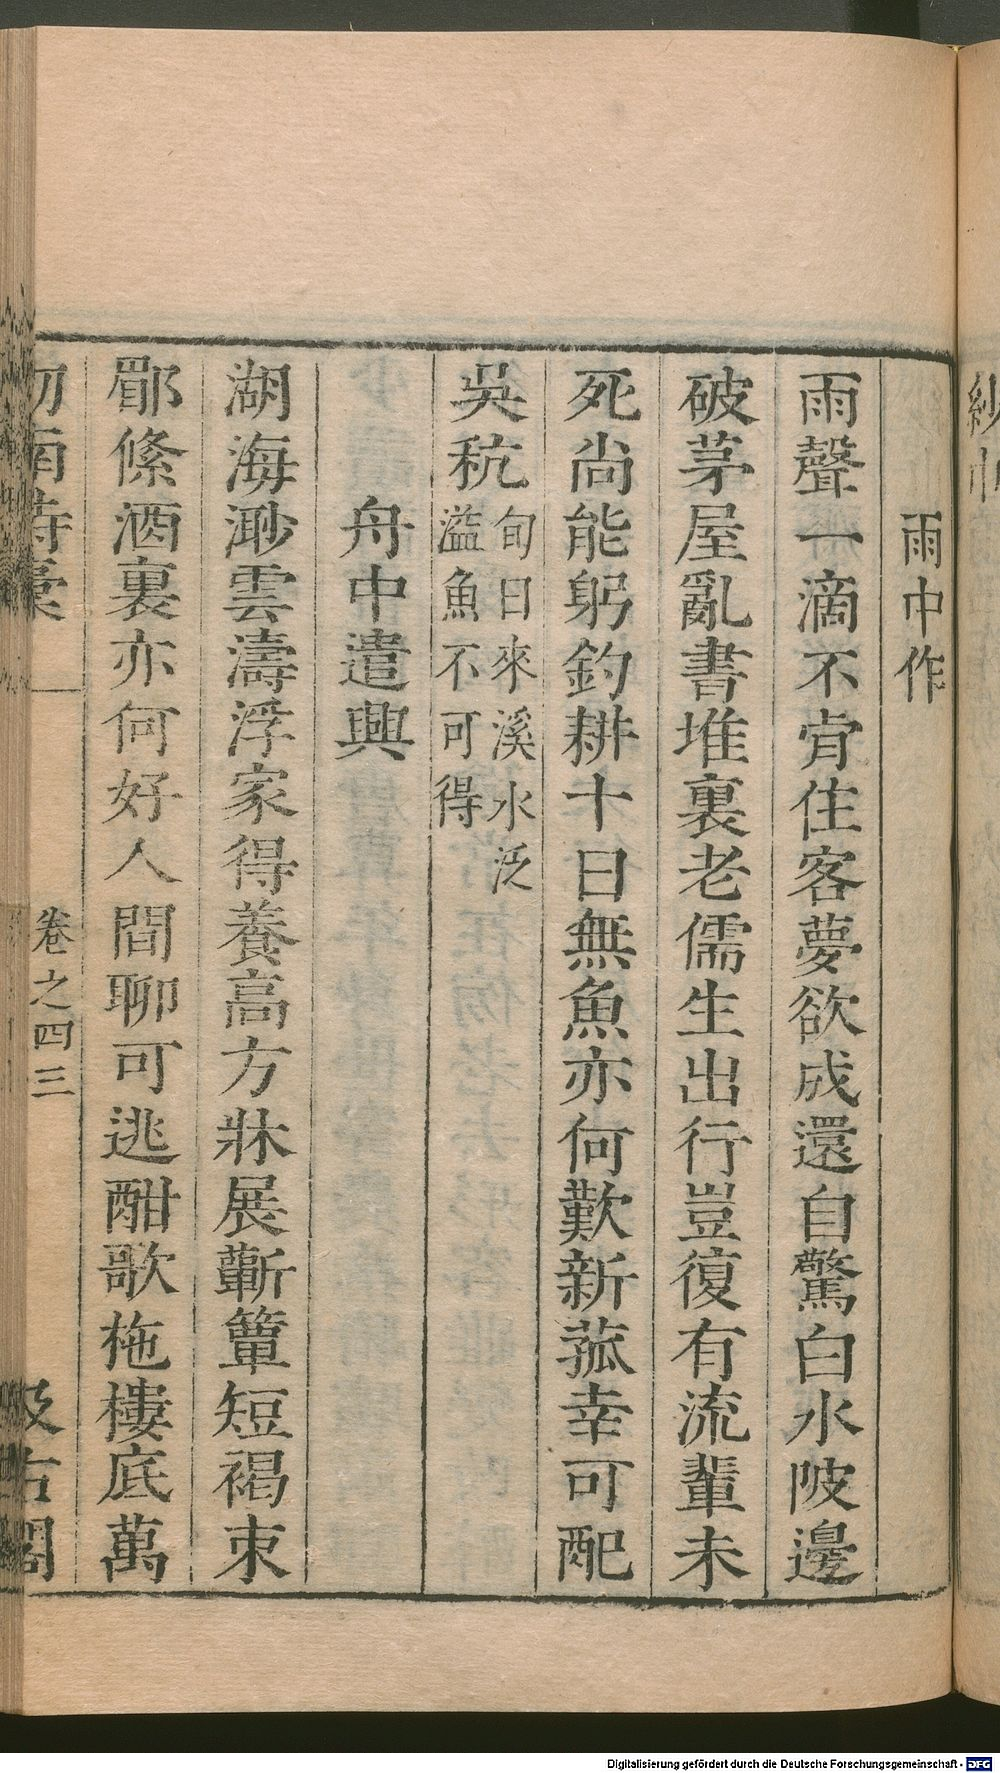 雨中作
雨聲一滴不肯住客夢欲成還自驚白水陂邊
破茅屋亂書堆裏老儒生出行豈復有流輩未
死尚能躬釣耕十日無魚亦何歎新菰幸可配
吳秔旬日來溪水泛
濫魚不可得
舟中遣興
湖海渺雲濤浮家得養高方牀展蘄簟短褐束
郿絛酒裏亦何好人間聊可逃酣歌拖樓底萬
劒南詩稾 卷之四三 汲古閣
Digitalisierung gefördert durch die Deutsche Forschungsgemeinschaft - DFG